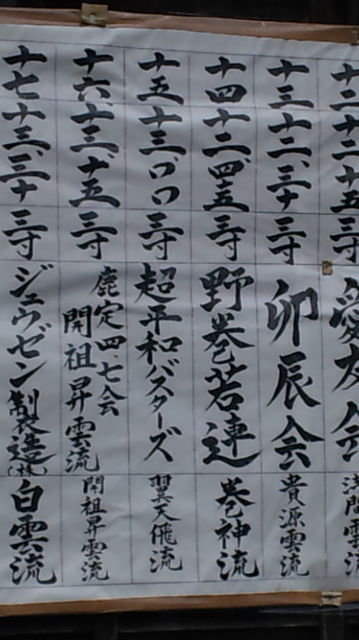 十二
十二、十五
三寸
愛友会
十三
十二、三十
三寸
卯辰会
貴源雲流
十四
十二、四五
三寸
野巻若連
巻神流
十五
十三、〇〇
三寸
超平和バスターズ
翼天飛流
十六
十三、十五
三寸
鹿定四、七会
開祖昇雲流
開祖昇雲流
十七
十三、三十
三寸
ジュウゼン製造(株)
白雲流